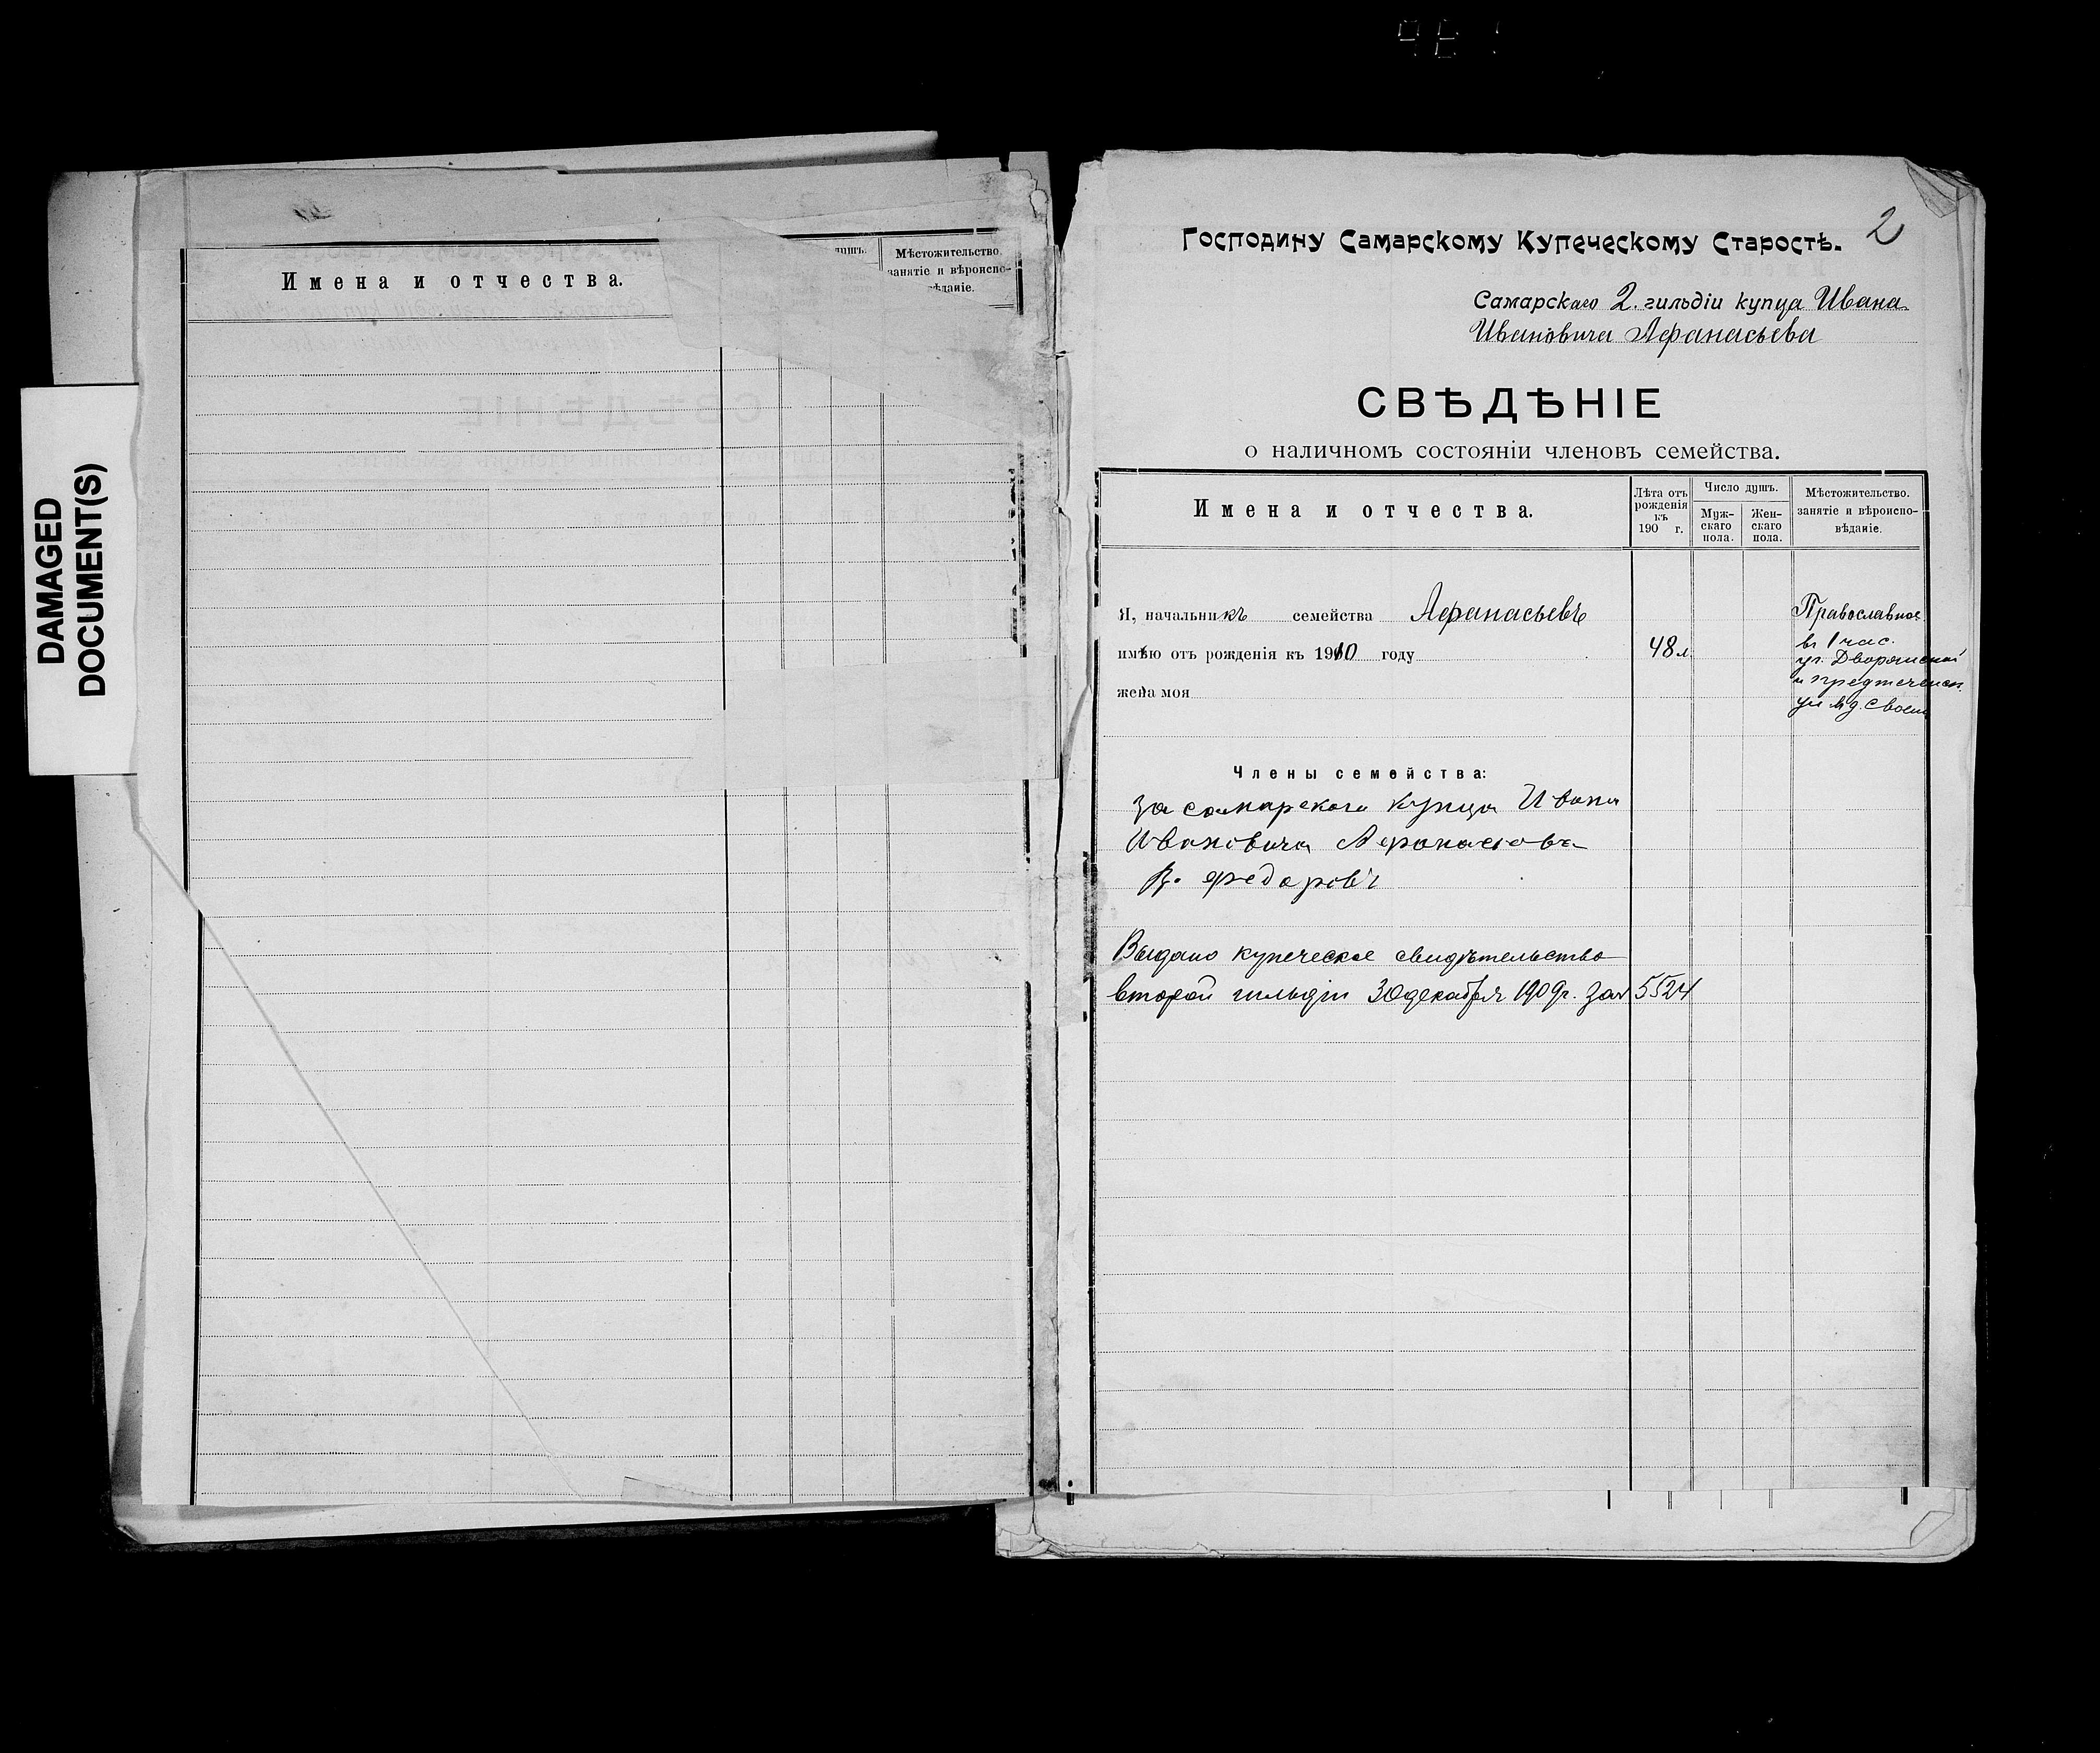 DAMAGED
DOCUMENT(S)
Имена и отчества.
душъ.
Мѣстожительство,
занятіе и вѣроиспо-
вѣданіе.
2
Господину Самарскому Купеческому Старостѣ.
Самарскаго 2. гильдіи купца Ивана
Ивановича Афанасьева
СВѢДѢНІЕ
о наличномъ состояніи членовъ семейства.
Имена и отчества.
Лѣта отъ
рожденія
къ
190 г.
Число душъ.
Муж-
скаго
пола.
Жен-
скаго
пола.
Мѣстожительство.
занятіе и вѣроиспо-
вѣданіе.
Я, начальникъ семейства Афанасьевъ
имѣю отъ рожденія къ 1910 году 48 л.
жена моя
Православное
въ 1 час.
уг. Дворянской
и предтеченск.
ул въ д. своем
Члены семейства:
За самарскаго купца Ивана
Ивановича Афонасьева
В. Федоровъ
Выдано купеческое свидѣтельство
второй гильдіи 30 декабря 1909 г. за № 5524